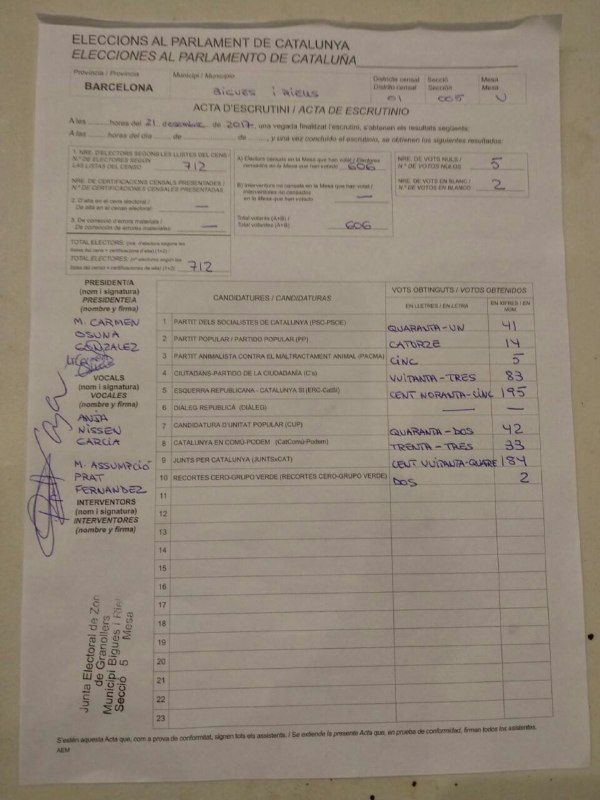 ELECCIONS AL PARLAMENT DE CATALUNYA
ELECCIONES AL PARLAMENTO DE CATALUÑA
Província / Provincia
BARCELONA
Municipi / Municipio
BIGUES I RIELLS
Districte censal
Distrito censal
01
Secció
Sección
005
Mesa
Mesa
U
ACTA D'ESCRUTINI / ACTA DE ESCRUTINIO
A les ........ hores del 21 desembre de 2017, una vegada finalitzat l'escrutini, s'obtenen els resultats següents:
A las ........ horas del día ........ de ........ de ........, y una vez concluido el escrutinio, se obtienen los siguientes resultados:
1. NRE. D'ELECTORS SEGONS LES LLISTES DEL CENS /
N.º DE ELECTORES SEGÚN
LAS LISTAS DEL CENSO
712
NRE. DE CERTIFICACIONS CENSALS PRESENTADES /
N.º DE CERTIFICACIONES CENSALES PRESENTADAS
2. D'alta en el cens electoral /
De alta en el censo electoral:
—
3. De correcció d'errors materials /
De corrección de errores materiales:
—
TOTAL ELECTORS:
TOTAL ELECTORES:
712
A) Electors censats en la Mesa que han votat / Electores
censados en la Mesa que han votado
606
B) Interventors no censats en la Mesa que han votat /
Interventores no censados
en la Mesa que han votado
—
Total votants (A+B) /
Total votantes (A+B)
606
NRE. DE VOTS NULS /
N.º DE VOTOS NULOS
5
NRE. DE VOTS EN BLANC /
N.º DE VOTOS EN BLANCO
2
PRESIDENT/A
(nom i signatura)
PRESIDENTE/A
(nombre y firma)
M. CARMEN
OSUNA
GONZALEZ
VOCALS
(nom i signatura)
VOCALES
(nombre y firma)
ANJA
NISSEN
GARCIA
M. ASSUMPCIÓ
PRAT
FERNANDEZ
INTERVENTORS
(nom i signatura)
INTERVENTORES
(nombre y firma)
CANDIDATURES / CANDIDATURAS
VOTS OBTINGUTS / VOTOS OBTENIDOS
EN LLETRES / EN LETRA
EN XIFRES / EN NÚM.
1 PARTIT DELS SOCIALISTES DE CATALUNYA (PSC-PSOE) QUARANTA-UN 41
2 PARTIT POPULAR / PARTIDO POPULAR (PP) CATORZE 14
3 PARTIT ANIMALISTA CONTRA EL MALTRACTAMENT ANIMAL (PACMA) CINC 5
4 CIUTADANS-PARTIDO DE LA CIUDADANÍA (C's) VUITANTA-TRES 83
5 ESQUERRA REPUBLICANA - CATALUNYA SÍ (ERC-CatSí) CENT NORANTA-CINC 195
6 DIÀLEG REPUBLICÀ (DIÀLEG) — —
7 CANDIDATURA D'UNITAT POPULAR (CUP) QUARANTA-DOS 42
8 CATALUNYA EN COMÚ-PODEM (CatComú-Podem) TRENTA-TRES 33
9 JUNTS PER CATALUNYA (JUNTSxCAT) CENT VUITANTA-QUATRE 184
10 RECORTES CERO-GRUPO VERDE (RECORTES CERO-GRUPO VERDE) DOS 2
11
12
13
14
15
16
17
18
19
20
21
22
23
Junta Electoral de Zon
de Granollers
Municipi Bigues i Riel
Secció 5 Mesa
S'estén aquesta Acta que, com a prova de conformitat, signen tots els assistents. / Se extiende la presente Acta que, en prueba de conformidad, firman todos los asistentes.
AEM